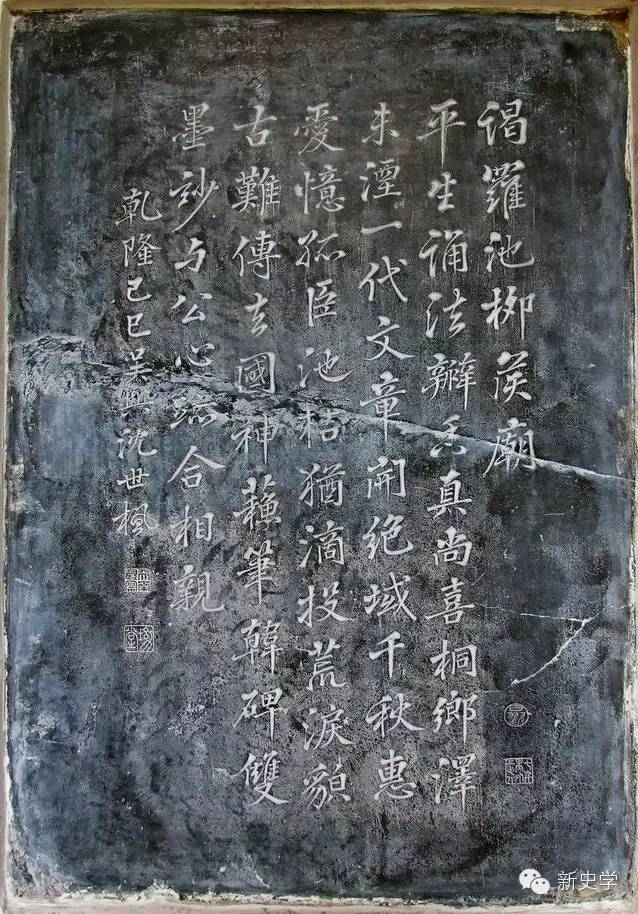 謁羅池栁矦廟
平生誦法瓣香真尚喜桐鄉澤
未湮一代文章開絶域千秋惠
愛憶孤臣池枯猶滴投荒淚䫉
古難傳去國神蘓筆韓碑雙
墨妙与公心跡合相親
乾隆己巳吳興沈世楓
新史学